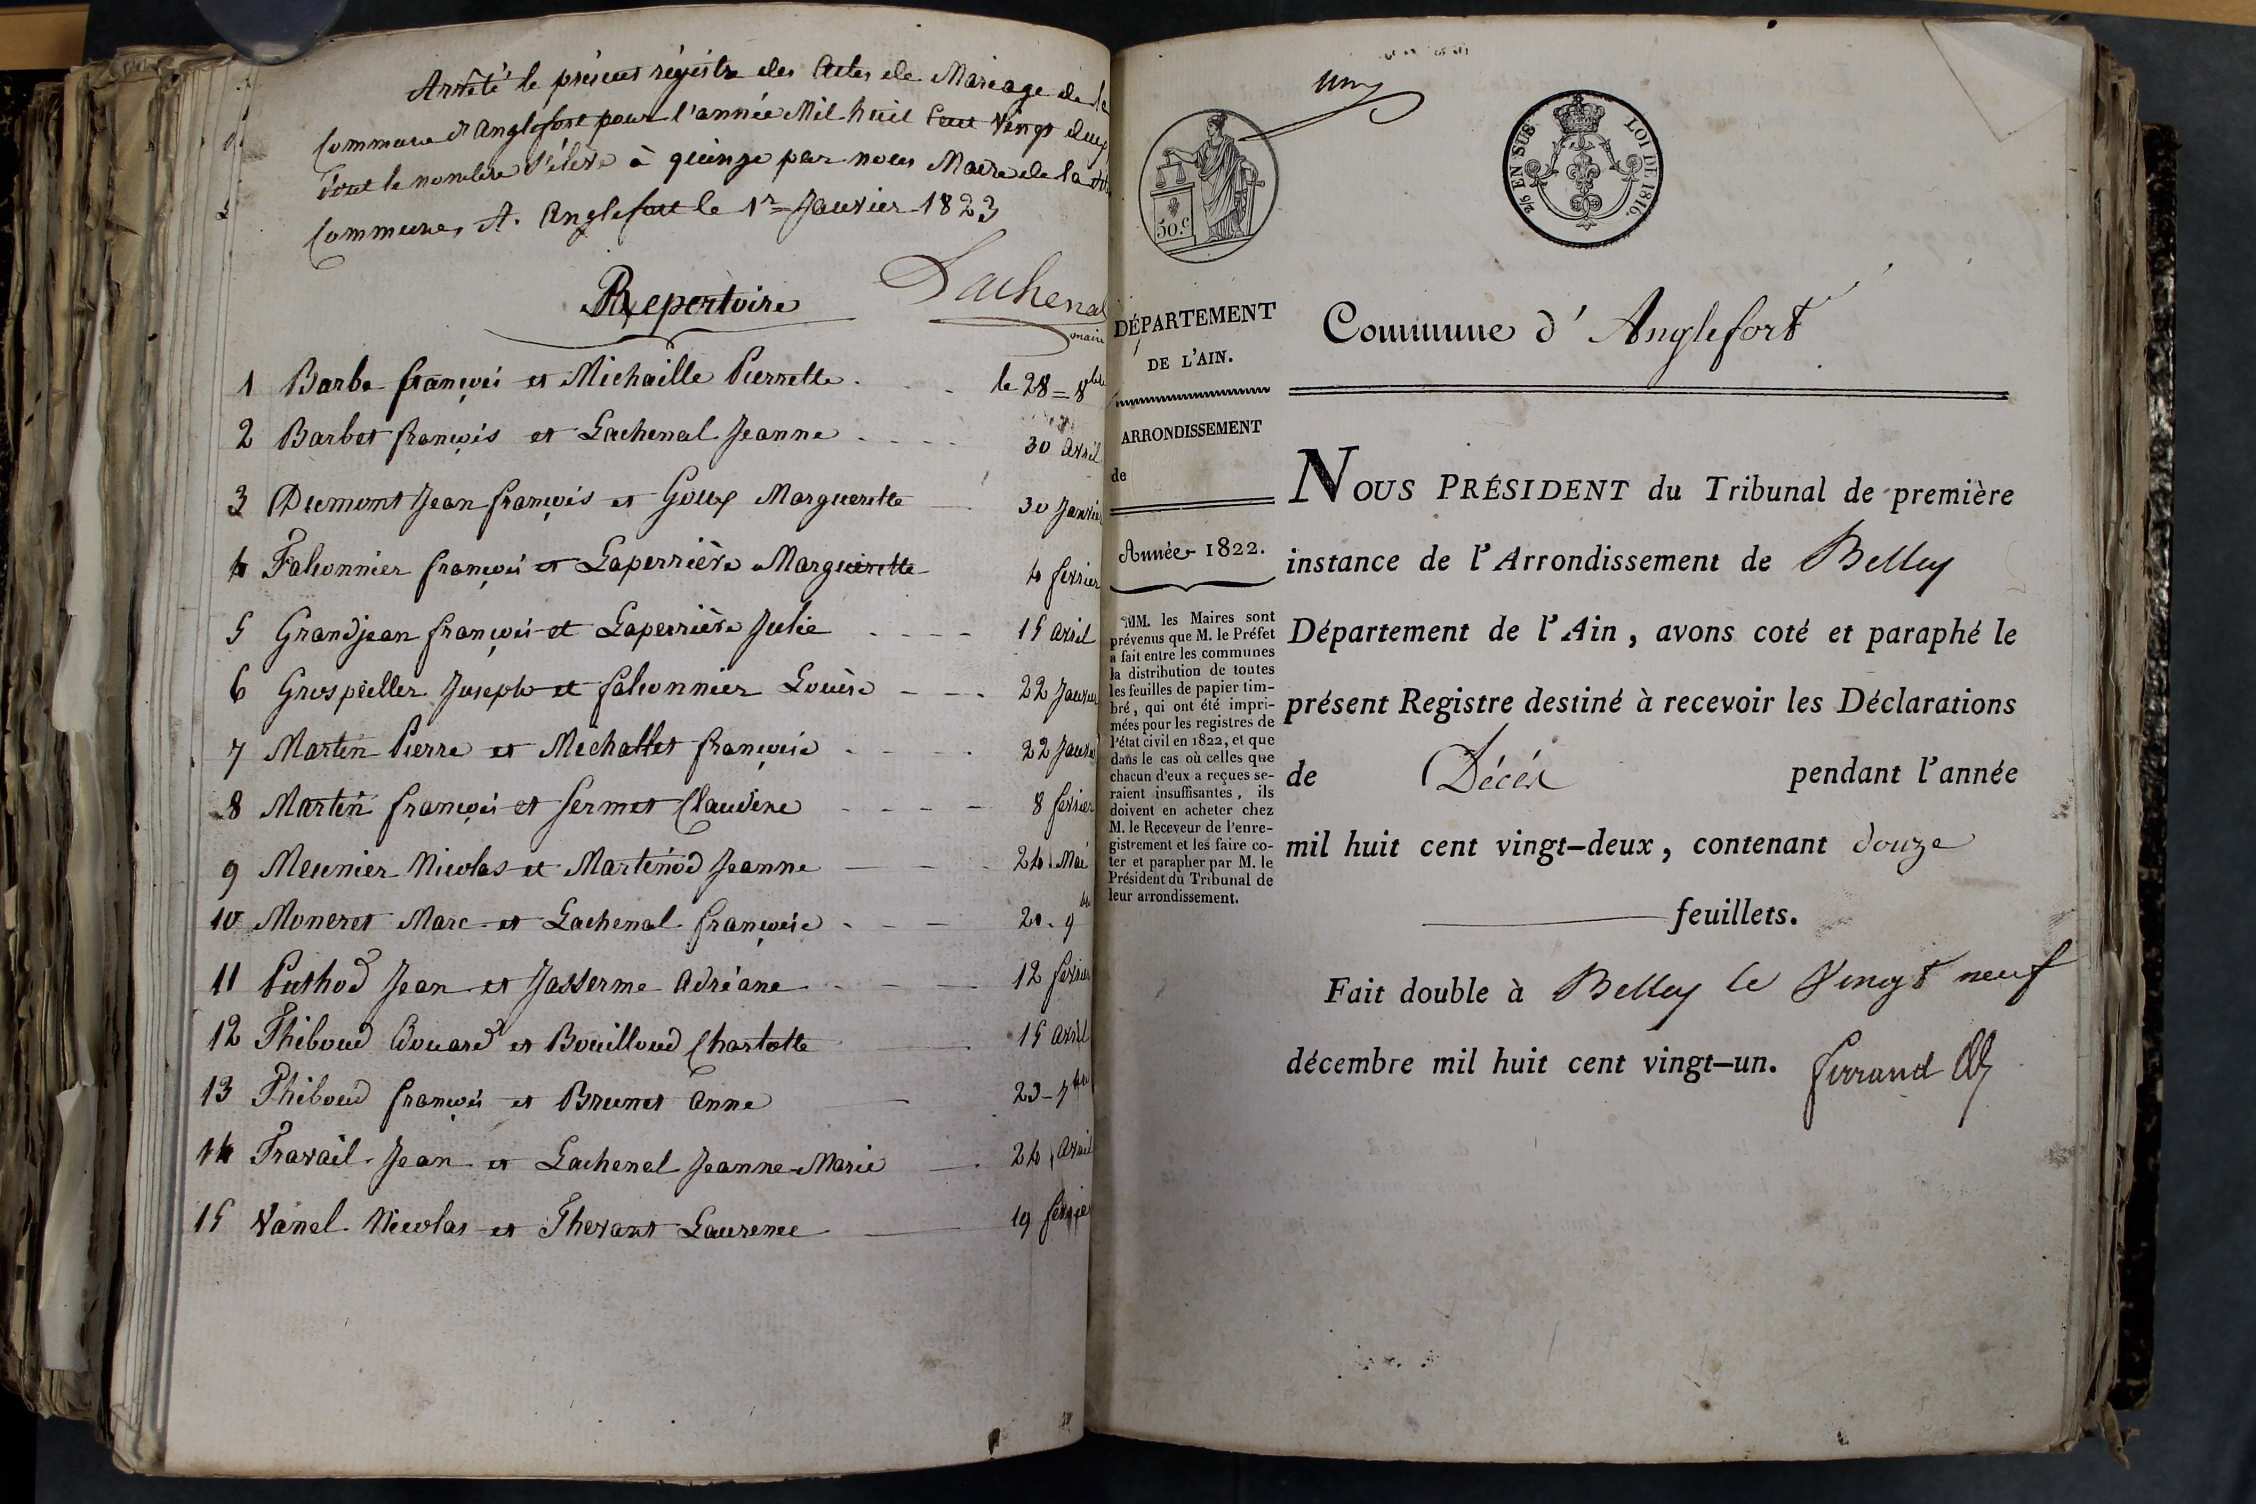 Arrêté le présent régistre des Actes de Mariage de la
Commune d'Anglefort pour l'année Mil huit Cent Vingt deux
dont le nombre s'élève à quinze par nous Maire de la dte
Commune, A. Anglefort le 1er Janvier 1823
Lachenal
maire
Repertoire
1 Barbe françois et Michaille Pierrette le 28 = 8bre
2 Barbet françois et Lachenal Jeanne 30 avril
3 Dumont Jean françois et Goux Marguerette 30 Janvier
4 Falconnier françois et Laperrière Marguerette 4 fevrier
5 Grandjean françois et Laperrière Julie 15 avril
6 Grospeiller Joseph et falconnier Louise 22 Janvier
7 Martin Pierre et Michallet françoise 22 Janvier
8 Martin françois et fermet Claudine 8 fevrier
9 Meunier Nicolas et Martinod Jeanne 24 Mai
10 Moneret Marc et Lachenal françoise 20 - 9bre
11 Puthod Jean et Jasserme Adréane 12 fevrier
12 Thiboud Edouard et Bouilloud Charlotte 15 avril
13 Thiboud françois et Brunet anne 23 - 7bre
14 Travail Jean et Lachenal Jeanne-Marie 24 Avril
15 Vanel Nicolas et Thevant Laurence 19 fevrier
un
50.c
2/5 EN SUS. LOI DE 1816.
DÉPARTEMENT
DE L'AIN.
ARRONDISSEMENT
de
Année 1822.
MM. les Maires sont
prévenus que M. le Préfet
a fait entre les communes
la distribution de toutes
les feuilles de papier tim-
bré, qui ont été impri-
mées pour les registres de
l'état civil en 1822, et que
dans le cas où celles que
chacun d'eux a reçues se-
raient insuffisantes, ils
doivent en acheter chez
M. le Receveur de l'enre-
gistrement et les faire co-
ter et parapher par M. le
Président du Tribunal de
leur arrondissement.
Commune d'Anglefort
NOUS PRÉSIDENT du Tribunal de première
instance de l'Arrondissement de Belley
Département de l'Ain, avons coté et paraphé le
présent Registre destiné à recevoir les Déclarations
de Décès pendant l'année
mil huit cent vingt-deux, contenant douze
feuillets.
Fait double à Belley le Vingt neuf
décembre mil huit cent vingt-un.
ferrand